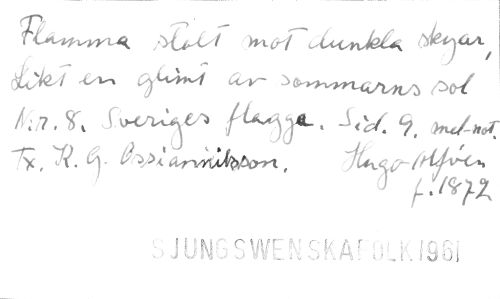 Flamma stolt mot dunkla skyar,
Likt en glimt av sommarns sol
N:r. 8. Sveriges flagga. Sid. 9. mel-not.
Tx. K. G. Ossiannilsson. Hugo Alfvén
f. 1872
SJUNGSWENSKAFOLK1961